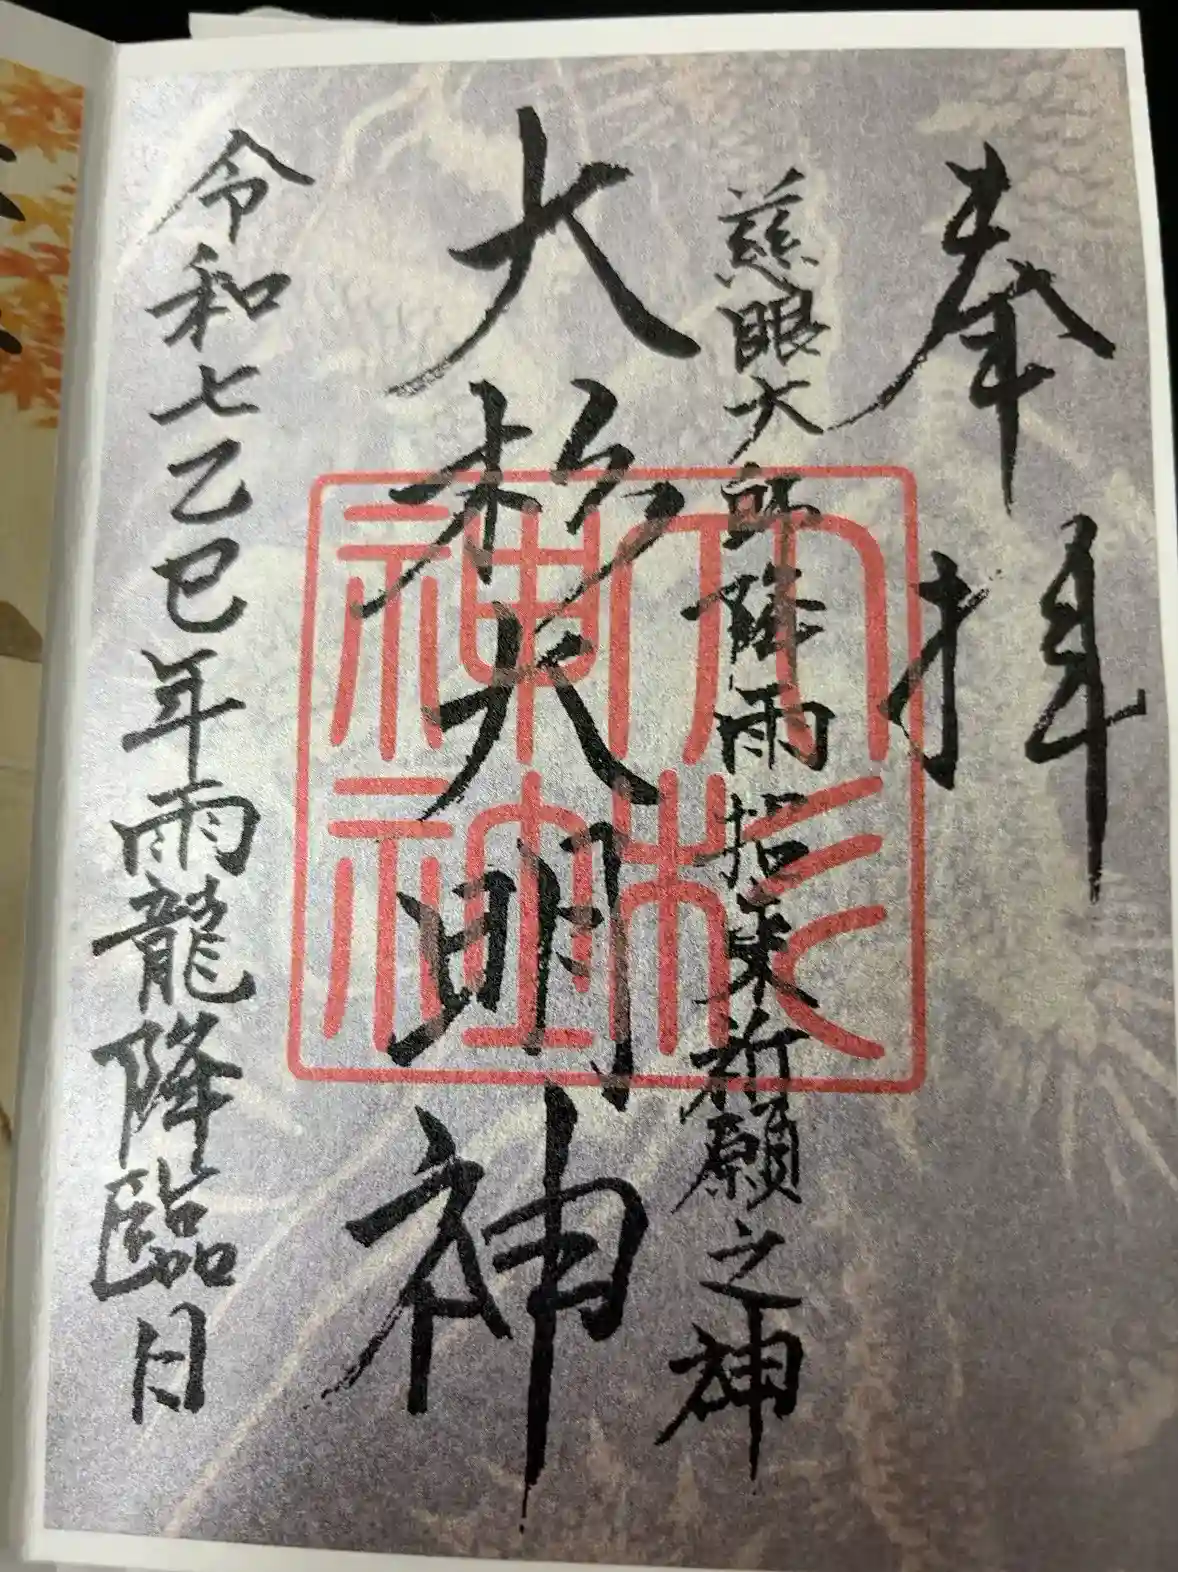 奉拝
慈眼大師降雨招来祈願之神
大杉大明神
令和七乙巳年雨龍降臨日
大杉
神社